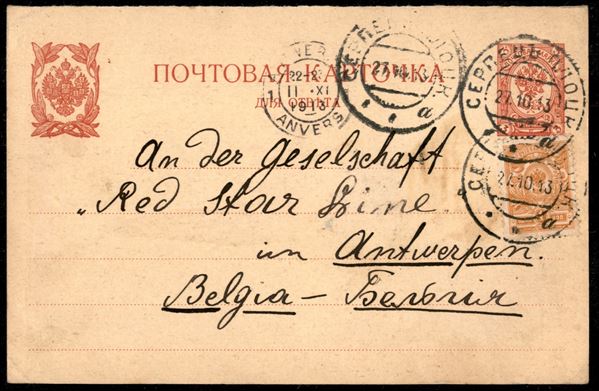 ПОЧТОВАЯ КАРТОЧКА
ДЛЯ ОТВѢТА
ANVERS
22-2
11 XI
1913
ANVERS
27.10.13
а
27.10.13
а
27.10.13
а
An der Geselschaft
„Red Star Line.
in Antwerpen.
Belgia – Бельгія